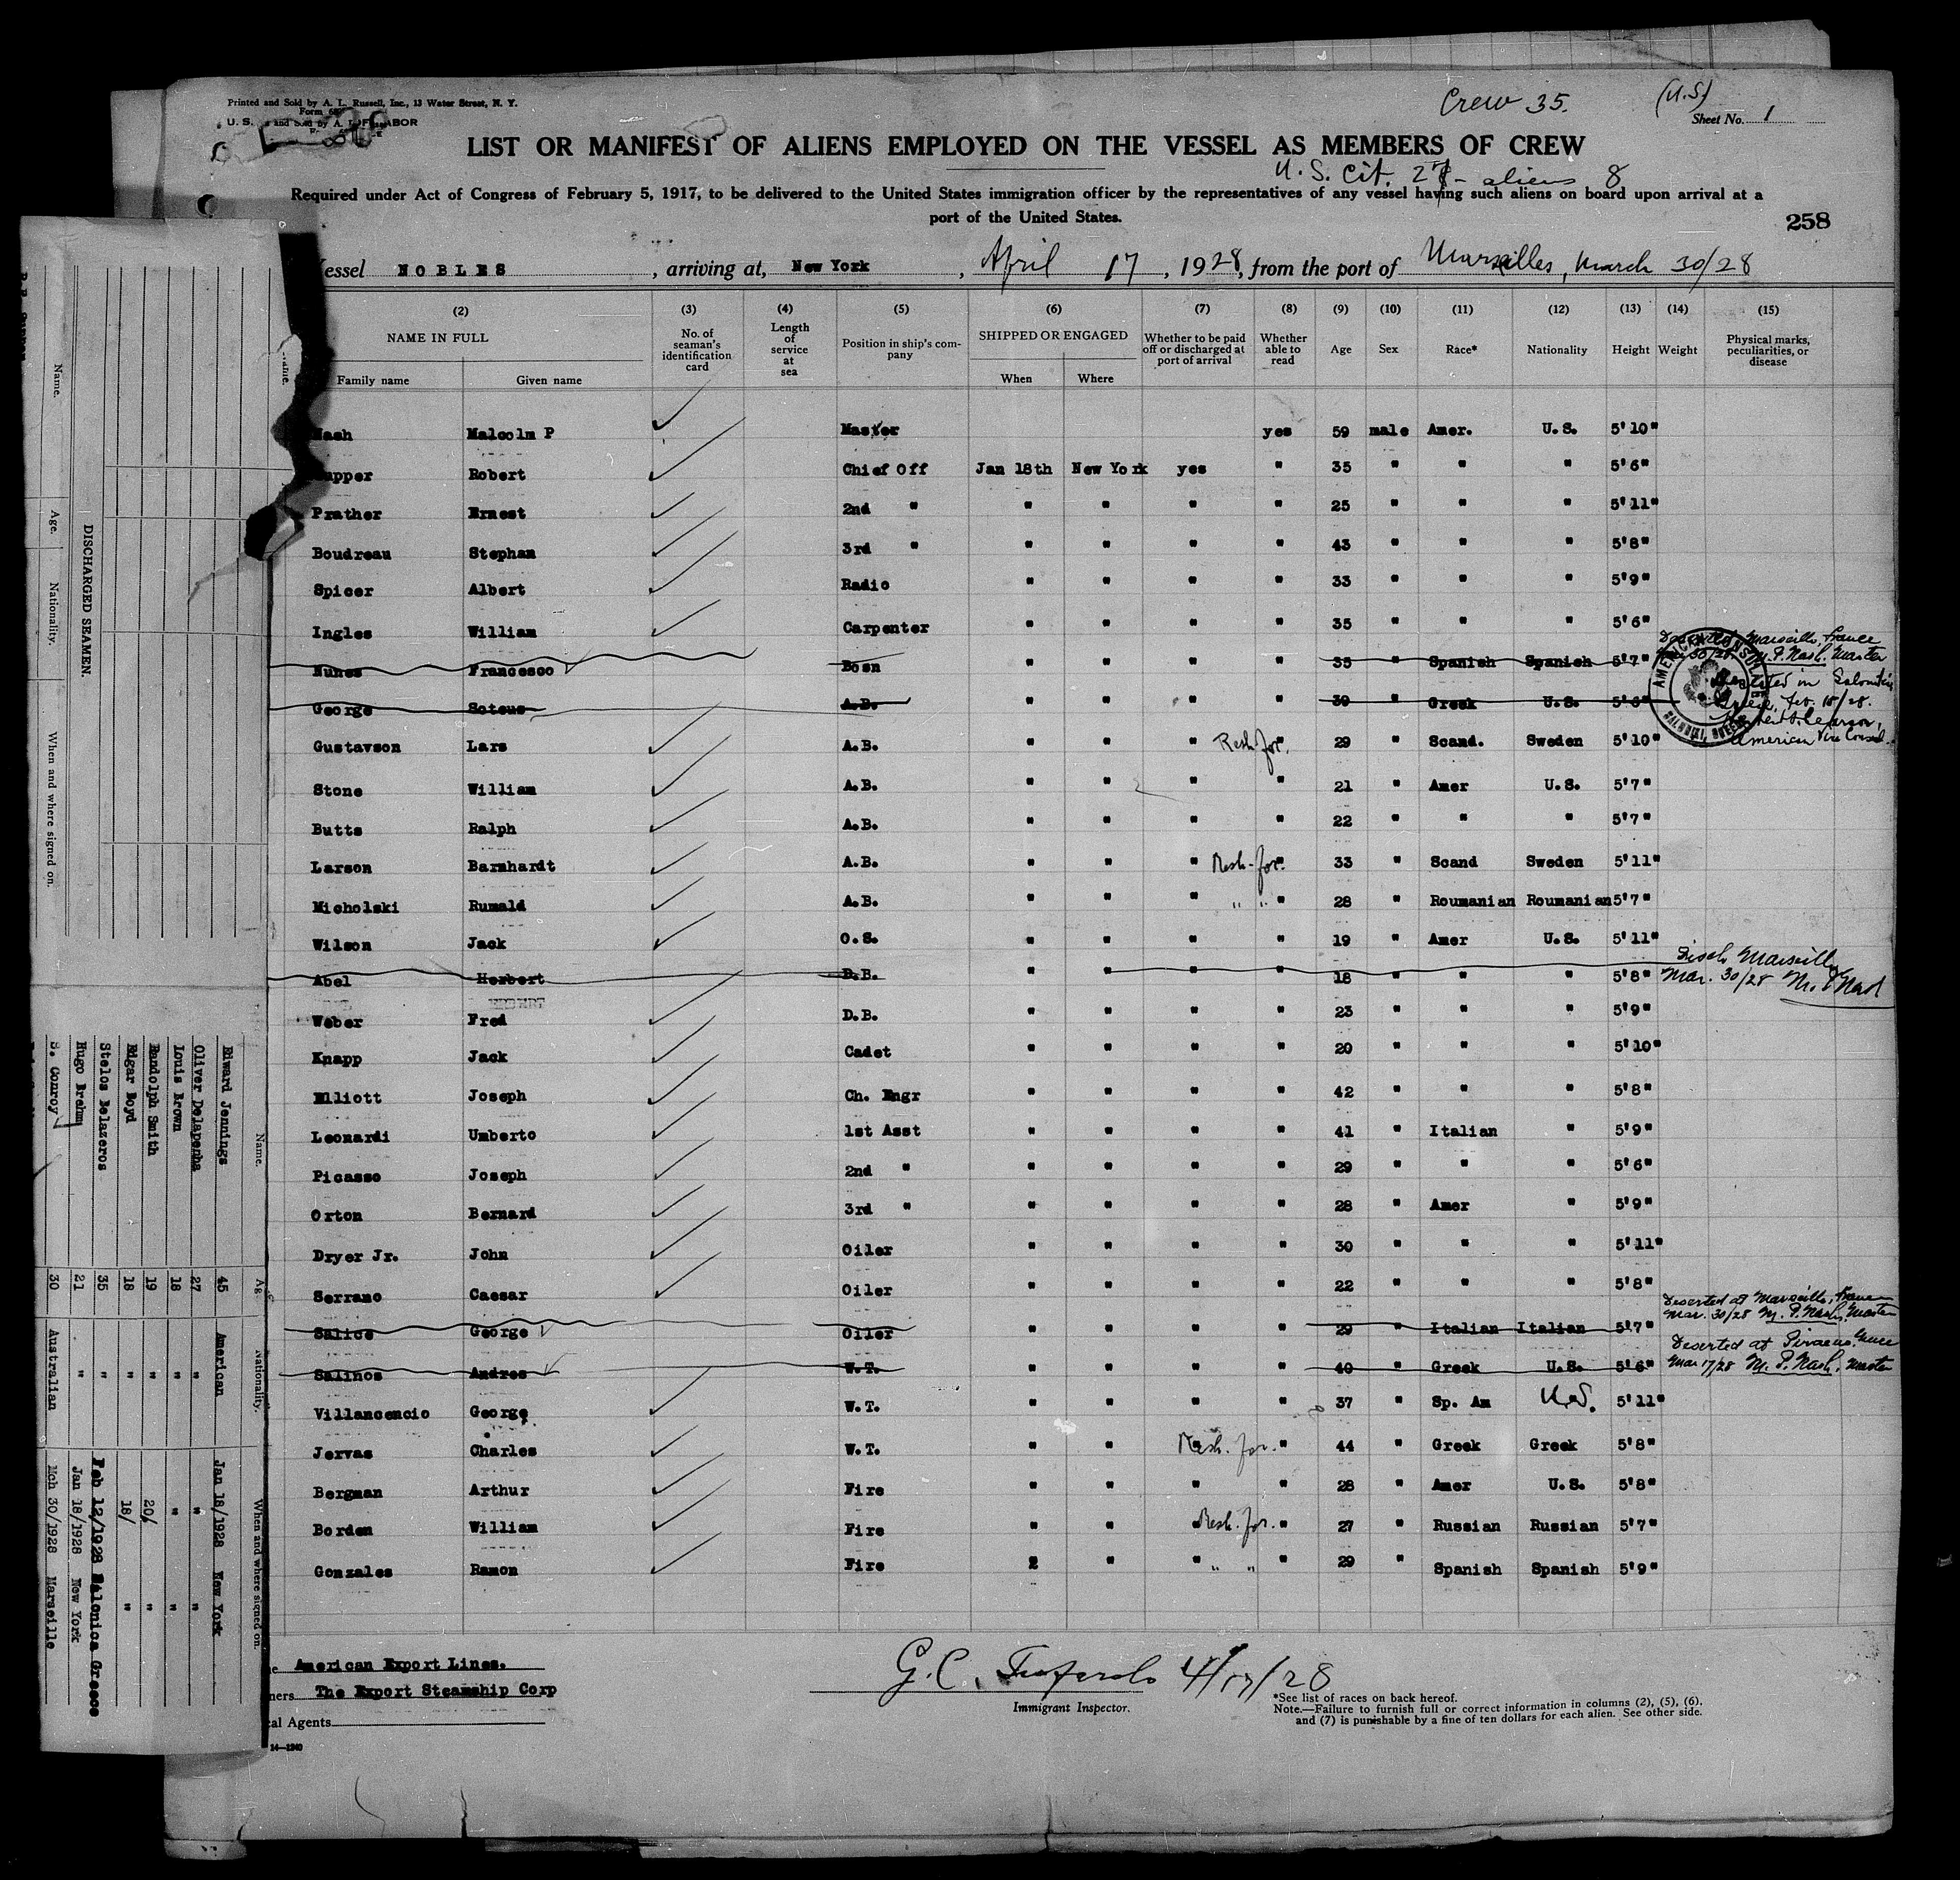 Printed and Sold by A. L. Russell, Inc., 13 Water Street, N. Y.
Form
U. S. and Sold by A. L. LABOR
Crew 35.
(U.S)
Sheet No. 1
LIST OR MANIFEST OF ALIENS EMPLOYED ON THE VESSEL AS MEMBERS OF CREW
U. S. Cit. 27 - aliens 8
Required under Act of Congress of February 5, 1917, to be delivered to the United States immigration officer by the representatives of any vessel having such aliens on board upon arrival at a
port of the United States.
258
essel NOBLES, arriving at, New York, April 17, 1928, from the port of Marseilles, March 30/28
(2) (3) (4) (5) (6) (7) (8) (9) (10) (11) (12) (13) (14) (15)
NAME IN FULL No. of seaman's identification card Length of service at sea Position in ship's company SHIPPED OR ENGAGED Whether to be paid off or discharged at port of arrival Whether able to read Age Sex Race* Nationality Height Weight Physical marks, peculiarities, or disease
Family name Given name When Where
Nash Malcolm P Master yes 59 male Amer. U.S. 5'10"
upper Robert Chief Off Jan 18th New York yes " 35 " " " 5'6"
Prather Ernest 2nd " " " " " 25 " " " 5'11"
Boudreau Stephan 3rd " " " " " 43 " " " 5'8"
Spicer Albert Radio " " " " 33 " " " 5'9"
Ingles William Carpenter " " " " 35 " " " 5'6"
Nunes Francesco Bosn " " " " 35 " Spanish Spanish 5'7" Marseille, France 30/28 M.P. Nash, Master
George Soteus A.B. " " " " 30 " Greek U.S. 5'6" in Greece, Feb. 18/28. American Vice Consul
AMERICAN CONSULATE
Gustavson Lars A.B. " " " Resh. for. " 29 " Scand. Sweden 5'10"
Stone William A.B. " " " " 21 " Amer U.S. 5'7"
Butts Ralph A.B. " " " " 22 " " " 5'7"
Larson Barnhardt A.B. " " " Resh. for. " 33 " Scand Sweden 5'11"
Micholski Rumald A.B. " " " " " " 28 " Roumanian Roumanian 5'7"
Wilson Jack O.S. " " " " 19 " Amer U.S. 5'11"
Abel Herbert D.B. " " " " 18 " " " 5'8" Disch Marseille Mar. 30/28 M. P. Nash
Weber Fred D.B. " " " " 23 " " " 5'9"
Knapp Jack Cadet " " " " 20 " " " 5'10"
Elliott Joseph Ch. Engr " " " " 42 " " " 5'8"
Leonardi Umberto 1st Asst " " " " 41 " Italian " 5'9"
Picasso Joseph 2nd " " " " " 29 " " " 5'6"
Orton Bernard 3rd " " " " " 28 " Amer " 5'9"
Dryer Jr. John Oiler " " " " 30 " " " 5'11"
Serrano Caesar Oiler " " " " 22 " " " 5'8"
Salice George Oiler " " " " 29 " Italian Italian 5'7" Deserted at Marseille, France Mar. 30/28 M. P. Nash, Master
Salinos Andres W.T. " " " " 40 " Greek U.S. 5'6" Deserted at Piraeus, Greece Mar 17/28 M. P. Nash, Master
Villancencio George W.T. " " " " 37 " Sp. Am U.S. 5'11"
Jervas Charles W.T. " " Resh. for. " 44 " Greek Greek 5'8"
Bergman Arthur Fire " " " " 28 " Amer U.S. 5'8"
Borden William Fire " " " Resh. for. " 27 " Russian Russian 5'7"
Gonzales Ramon Fire " " " " " " 29 " Spanish Spanish 5'9"
American Export Lines.
ners The Export Steamship Corp
al Agents
14—1240
G.C. 4/17/28
Immigrant Inspector.
*See list of races on back hereof.
Note.—Failure to furnish full or correct information in columns (2), (5), (6),
and (7) is punishable by a fine of ten dollars for each alien. See other side.
DISCHARGED SEAMEN.
Name. Age. Nationality. When and where signed on.
Name. Ag Nationality. When and where signed on.
Edward Jennings 45 American Jan 18/1928 New York
Oliver Delapenha 27 " " "
Louis Brown 18 " " "
Randolph Smith 19 " 20/ "
Edgar Boyd 18 " 18/ "
Stelos Belazeros 35 " Feb 12/1928 Salonica Greece
Hugo Brehm 21 " Jan 18/1928 New York
S. Conroy 30 Australian Mch 30/1928 Marseille